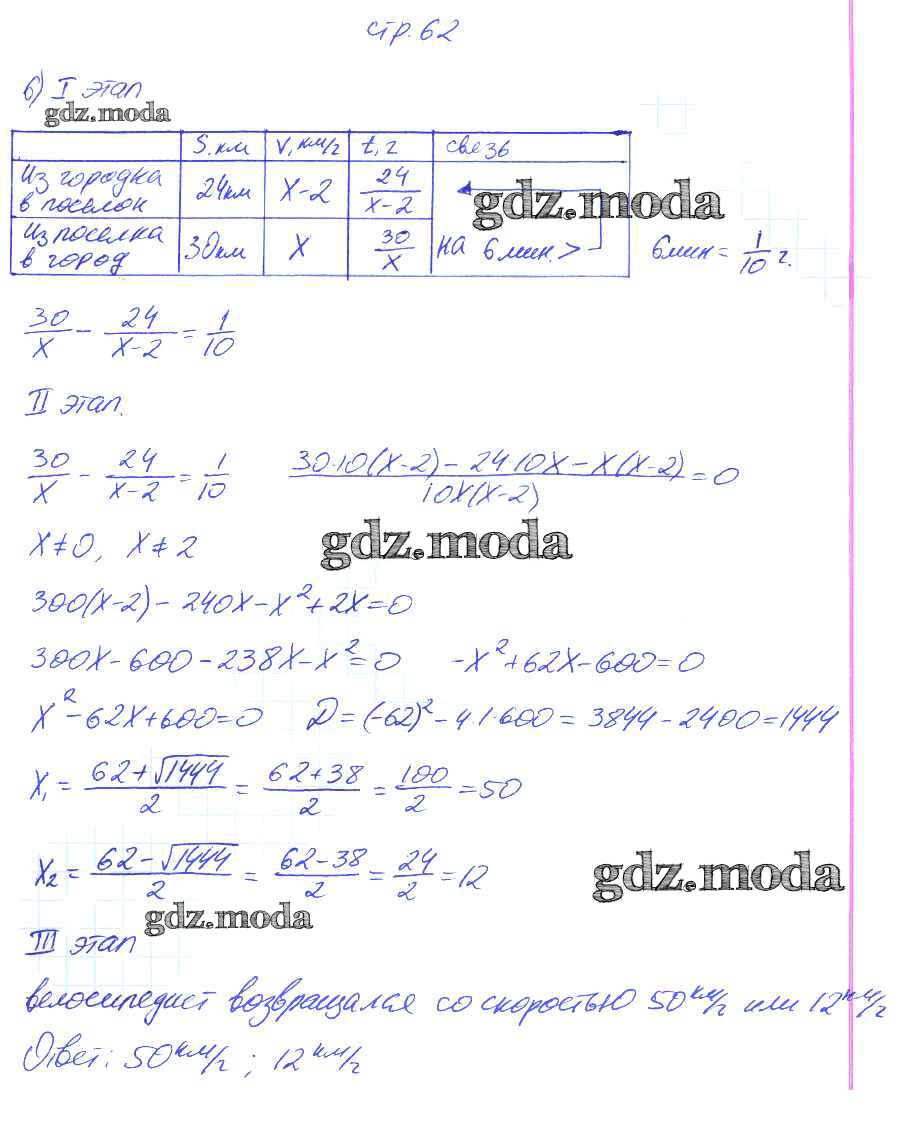 стр. 62
б) I этап
gdz.moda
S. км V, км/г t, г свезь
Из городка в поселок 24км X-2 24/(X-2)
gdz.moda
Из поселка в город 30км X 30/X на 6 мин. > 6 мин = 1/10 г.
30/X - 24/(X-2) = 1/10
II этап.
30/X - 24/(X-2) = 1/10 (30·10(X-2) - 24·10X - X(X-2))/(10X(X-2)) = 0
X≠0, X≠2
gdz.moda
300(X-2) - 240X - X² + 2X = 0
300X - 600 - 238X - X² = 0 -X² + 62X - 600 = 0
X² - 62X + 600 = 0 D = (-62)² - 4·1·600 = 3844 - 2400 = 1444
X₁ = (62+√1444)/2 = (62+38)/2 = 100/2 = 50
X₂ = (62-√1444)/2 = (62-38)/2 = 24/2 = 12
gdz.moda
gdz.moda
III этап
велосипедист возвращался со скоростью 50 км/г или 12 км/г
Ответ: 50 км/г ; 12 км/г